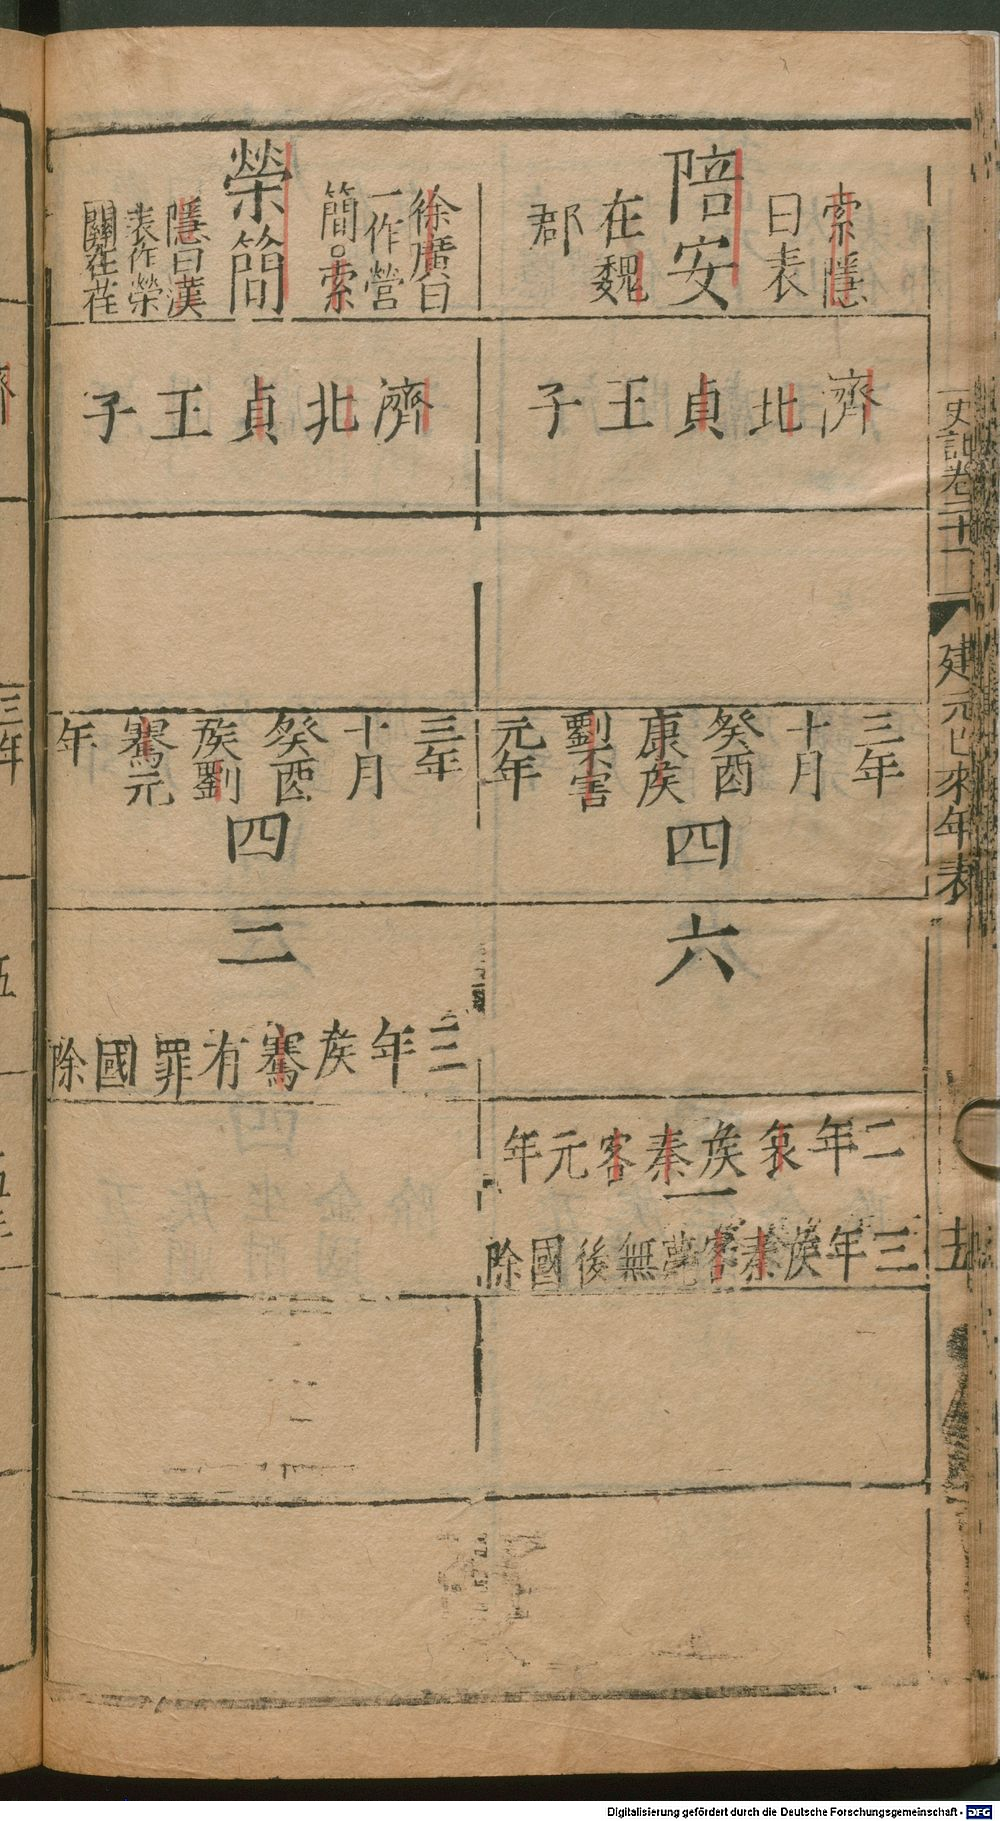 史記卷二十一
建元已來年表
十五
索隱
曰表
陪安
在魏
郡
濟北貞王子
三年
十月
癸酉
康侯
劉不害
元年
四
六
二年哀侯秦客元年
一
三年侯秦客薨無後國除
徐廣曰
一作營
簡○索
榮簡
隱曰漢
表作榮
關在茌
濟北貞王子
三年
十月
癸酉
侯劉
騫元
年
四
二
三年侯騫有罪國除
三年
五
Digitalisierung gefördert durch die Deutsche Forschungsgemeinschaft - DFG